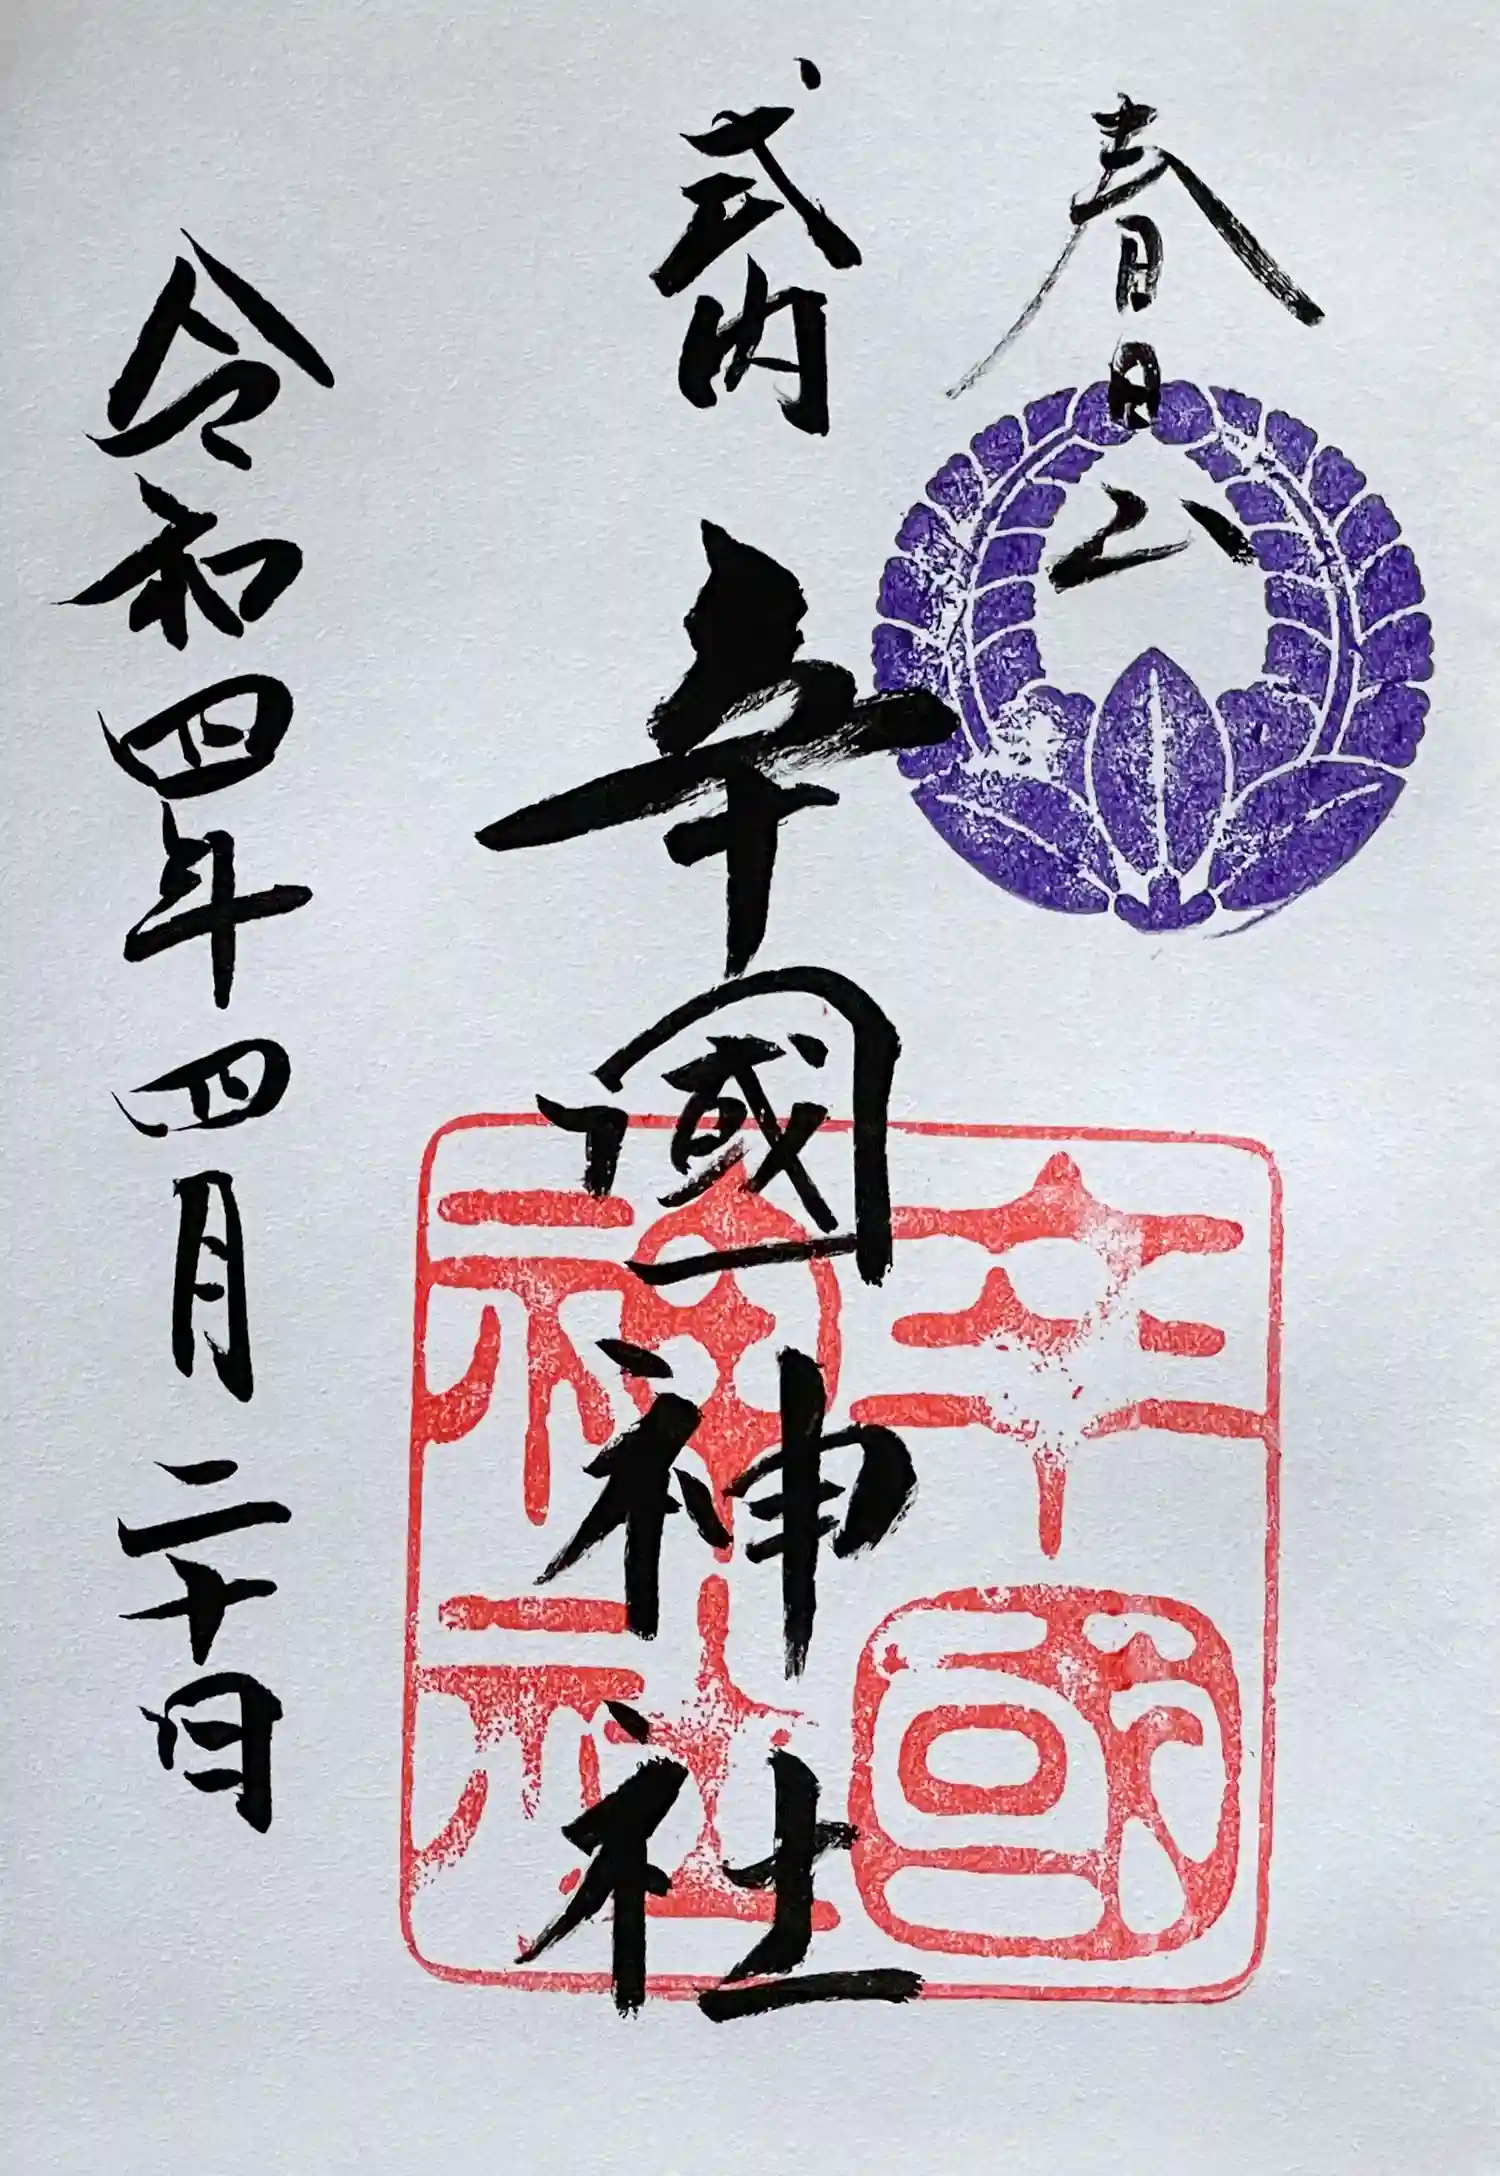 春日山
式内 辛國神社
令和四年四月二十日
辛國
神社